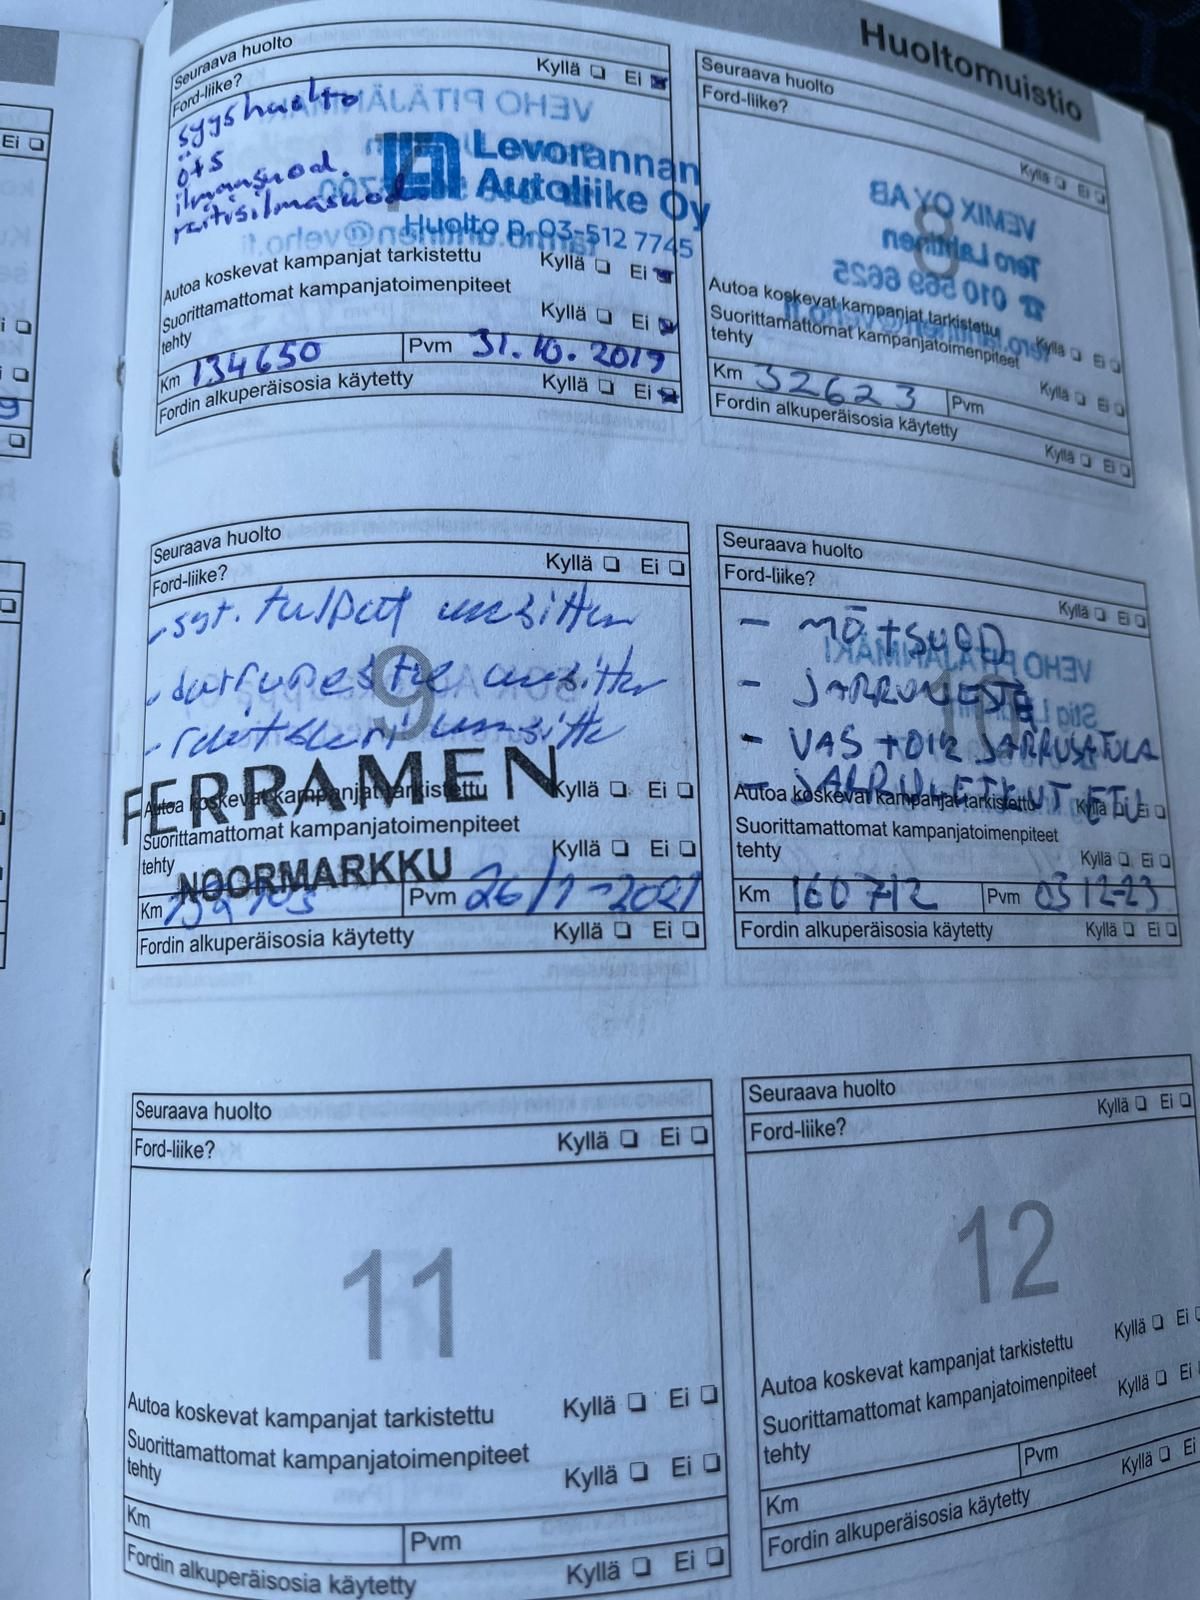 Huoltomuistio
Seuraava huolto
Ford-liike? Kyllä ❏ Ei ❏
syyshuolto
ö+s
ilmansuod.
raitisilmasuod.
Levorannan
Autoliike Oy
Huolto p. 03-512 7745
Autoa koskevat kampanjat tarkistettu Kyllä ❏ Ei ❏
Suorittamattomat kampanjatoimenpiteet
tehty Kyllä ❏ Ei ❏
Km 134650 Pvm 31.10.2019
Fordin alkuperäisosia käytetty Kyllä ❏ Ei ❏
Seuraava huolto
Ford-liike? Kyllä ❏ Ei ❏
8
VEMIX OY AB
Tero Lahtinen
☎ 010 569 6625
Autoa koskevat kampanjat tarkistettu Kyllä ❏ Ei ❏
Suorittamattomat kampanjatoimenpiteet
tehty Kyllä ❏ Ei ❏
Km 32623 Pvm
Fordin alkuperäisosia käytetty Kyllä ❏ Ei ❏
Seuraava huolto
Ford-liike? Kyllä ❏ Ei ❏
9
- syt. tulpat
- jarruneste
FERRAMEN
NOORMARKKU
Autoa koskevat kampanjat tarkistettu Kyllä ❏ Ei ❏
Suorittamattomat kampanjatoimenpiteet
tehty Kyllä ❏ Ei ❏
Km Pvm 26/1-2021
Fordin alkuperäisosia käytetty Kyllä ❏ Ei ❏
Seuraava huolto
Ford-liike? Kyllä ❏ Ei ❏
10
- MÖ+SUOD
- JARRUNESTE
- VAS +OIK JARRUSATULA
- JARRULETKUT ETU
VEHO PITÄJÄNMÄKI
Autoa koskevat kampanjat tarkistettu Kyllä ❏ Ei ❏
Suorittamattomat kampanjatoimenpiteet
tehty Kyllä ❏ Ei ❏
Km 160712 Pvm 03 12-23
Fordin alkuperäisosia käytetty Kyllä ❏ Ei ❏
Seuraava huolto
Ford-liike? Kyllä ❏ Ei ❏
11
Autoa koskevat kampanjat tarkistettu Kyllä ❏ Ei ❏
Suorittamattomat kampanjatoimenpiteet
tehty Kyllä ❏ Ei ❏
Km Pvm
Fordin alkuperäisosia käytetty Kyllä ❏ Ei ❏
Seuraava huolto
Ford-liike? Kyllä ❏ Ei ❏
12
Autoa koskevat kampanjat tarkistettu Kyllä ❏ Ei ❏
Suorittamattomat kampanjatoimenpiteet
tehty Kyllä ❏ Ei ❏
Km Pvm
Fordin alkuperäisosia käytetty Kyllä ❏ Ei